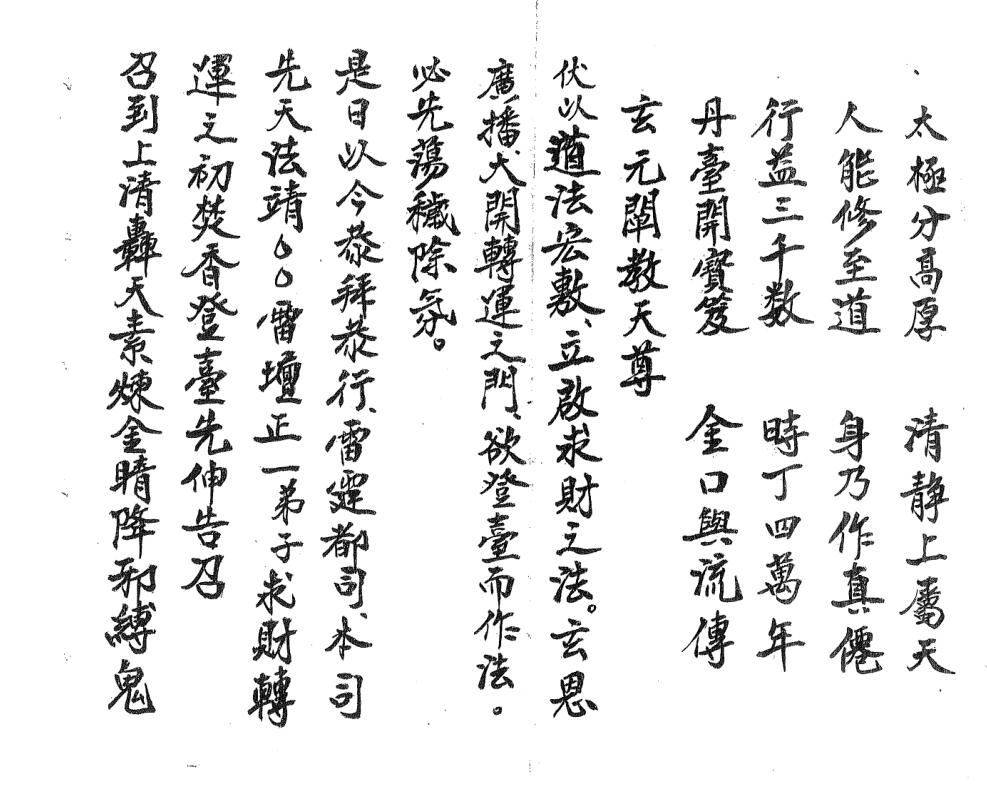 太極分高厚　清靜上屬天
人能修至道　身乃作真僊
行益三千数　時丁四萬年
丹臺開寳笈　金口與流傳
玄元闡教天尊
伏以道法宏敷、立啟求財之法。玄恩
廣播、大開轉運之門、欲登臺而作法。
必先蕩穢除氛。
是日以今恭拜恭行、雷霆都司、本司
先天法靖○○雷壇正一弟子求財轉
運之初焚香登臺先伸告召
召到上清轟天素煉金睛降邪縛鬼